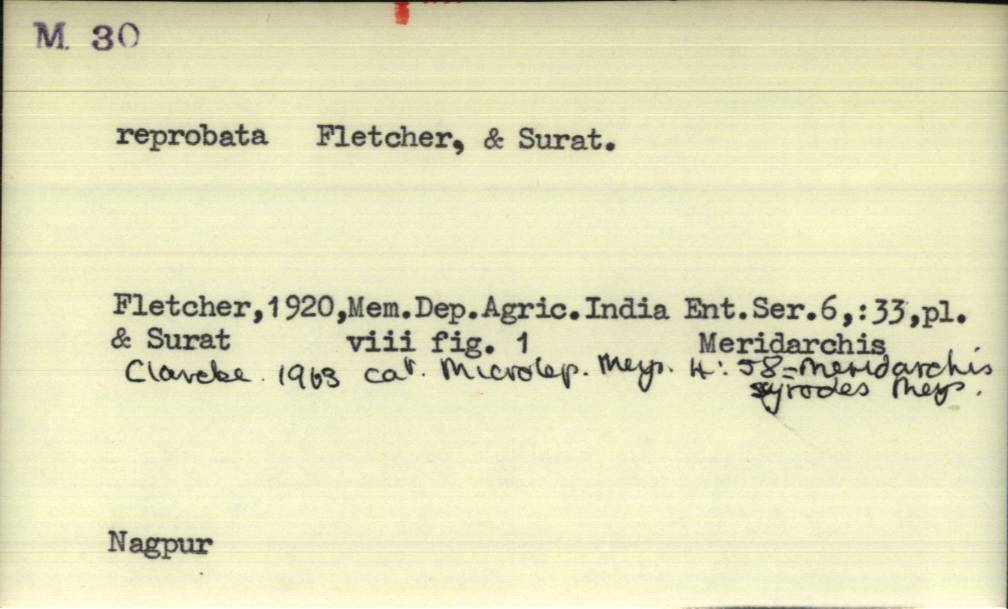 M. 30
reprobata Fletcher, & Surat.
Fletcher,1920,Mem.Dep.Agric.India Ent.Ser.6,:33,pl.
& Surat viii fig. 1 Meridarchis
Clarcke. 1963 cat. Microlep. Meyr. 4: 58 = Meridarchis
syrodes Meyr.
Nagpur